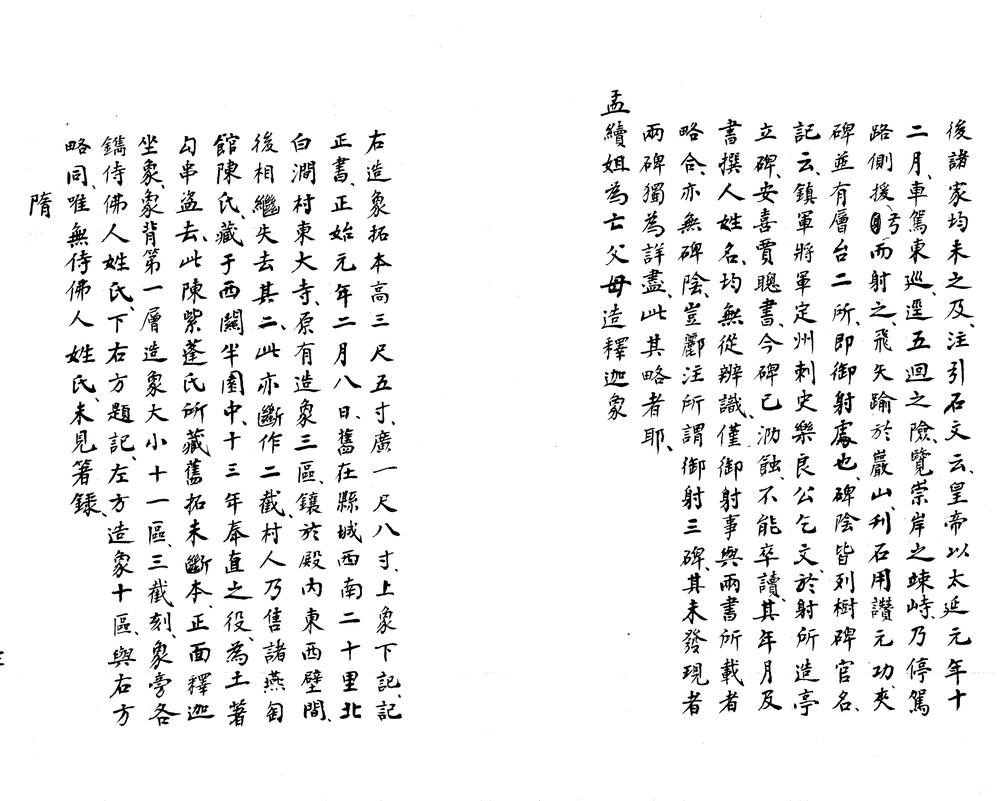 後諸家均未之及、注引石文云、皇帝以太延元年十
二月、車駕東巡、逕五迴之險、覽崇岸之竦峙、乃停駕
路側、援弓而射之、飛矢踰於巖山、刋石用讚元功、夾
碑並有層台二所、即御射處也、碑陰皆列樹碑官名、
記云、鎮軍將軍定州刺史樂良公乞文、於射所造亭
立碑、安喜賈聰書、今碑已泐蝕、不能卒讀、其年月及
書撰人姓名、均無從辨識、僅御射事與兩書所載者
略合、亦無碑陰、豈酈注所謂御射三碑、其未發現者
兩碑獨為詳盡、此其略者耶、
孟續姐為亡父母造釋迦象
右造象拓本高三尺五寸、廣一尺八寸、上象下記、記
正書、正始元年二月八日、舊在縣城西南二十里北
白澗村東大寺、原有造象三區、鑲於殿內東西壁間、
後相繼失去其二、此亦斷作二截、村人乃售諸燕匋
館陳氏、藏于西關半園中、十三年奉直之役、為土著
勾串盜去、此陳紫蓬氏所藏舊拓未斷本、正面釋迦
坐象、象背第一層造象大小十一區、三截刻、象旁各
鐫侍佛人姓氏、下右方題記、左方造象十區、與右方
略同、唯無侍佛人姓氏、未見箸錄、
隋